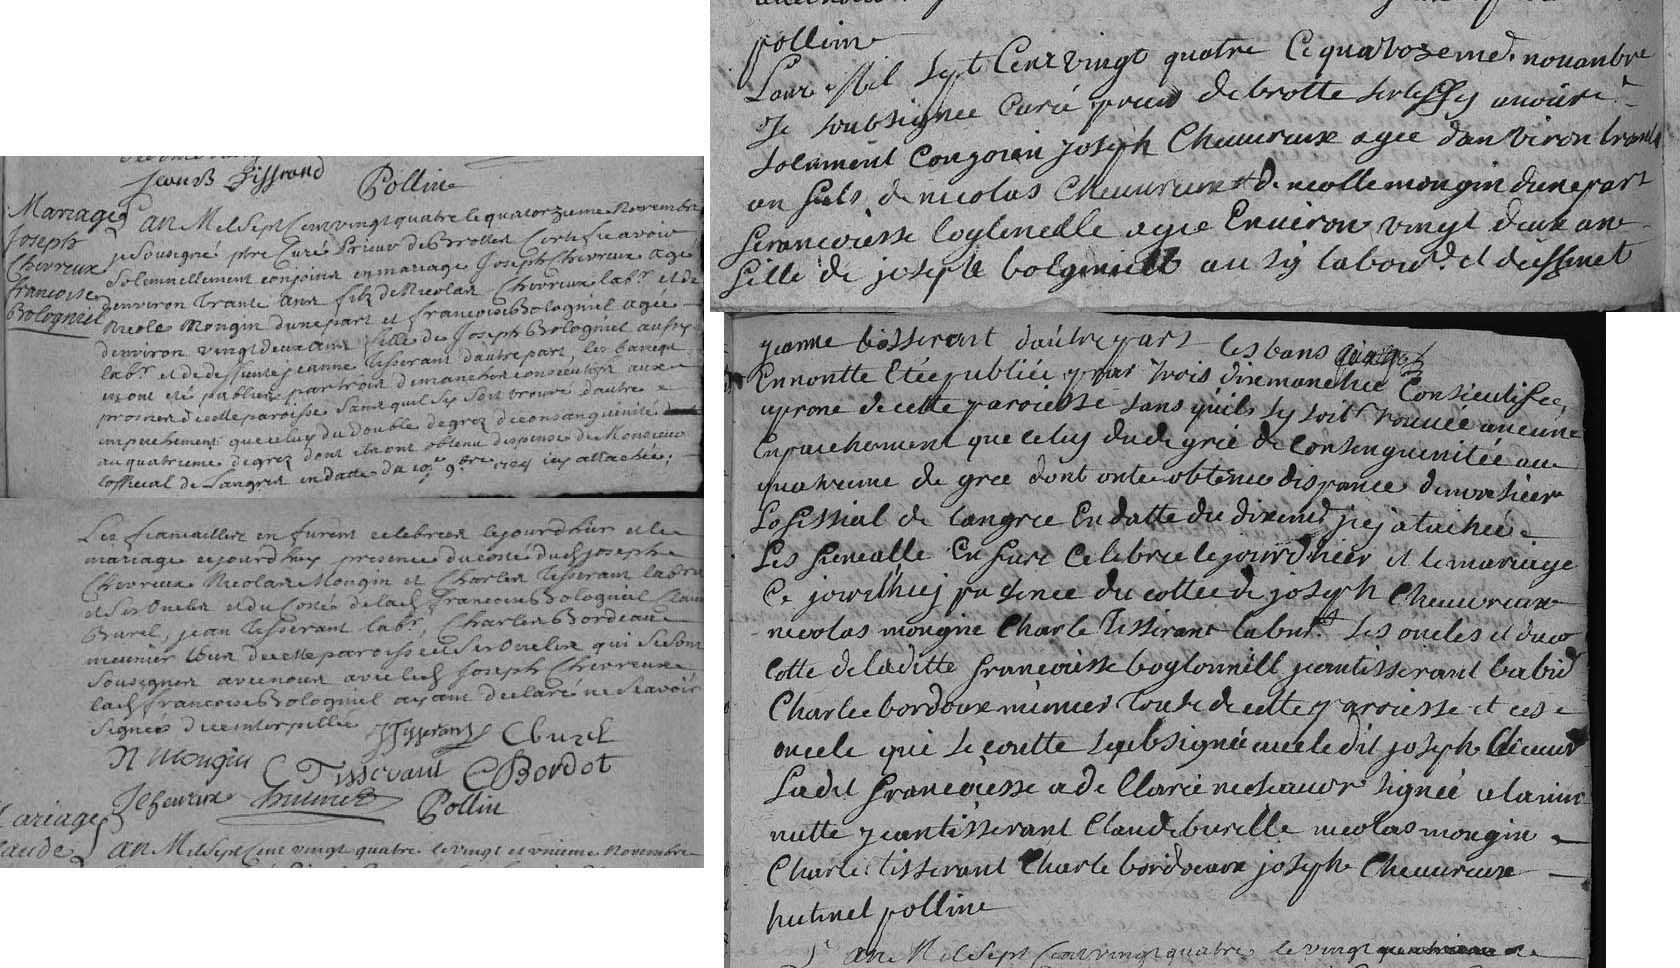 Jean B Tisserand Pollin
Mariage
Joseph
Chevreux
françoise
Bologniel
L'an Mil Sept Cent vingt quatre le quatorzieme Novembre
je Sousigné ptre Curé Prieur de Brotter Certifie avoir
Solemnellement conjoint en mariage Joseph Chevreux agé
denviron trante ans fils de Nicolas Chevreux labr et de
Nicole Mongin dune part et françoise Bologniel agée
denviron vingt deux ans fille de Joseph Bologniel aussy
labr et de deffunte jeanne Tisserant dautre part, les bans
ayant été publiez par trois dimanches consecutifs aux
prosnes de cette paroisse Sans quil sy soit trouvé dautre
empeschement que celuy du double degrez de consanguinité
au quatrieme degrez dont ils ont obtenu dispense de Monsieur
lofficial de Langres en datte du 10e 9bre 1724 icy attachée;
Les fiancailles en furent celebrees le jourdhier et le
mariage cejourdhuy presence du costé dud Joseph
Chevreux Nicolas Mongin et Charles Tisserant labrs
et ses oncles et du costé de lad françoise Bologniel Claude
Burel, jean Tisserant labr, Charles Bordeaux
meunier tous de cette paroisse et ses oncles qui se sont
Sousignez avec nous avec led Joseph Chevreux
lad françoise Bologniel ayant declaré ne Scavoir
Signer de ce interpellée
JTisserand Cburel
N mongin C Tisserant CBordot
J cheureux hutinet Pollin
Mariage
Claude
L'an Mil Sept Cent vingt quatre le vingt et unieme Novembre
polline
Lane Mil sept Cent vingt quatre Ce quatorzeme novanbre
Je soubsignee Curé prieur de brotte sertiffy avoire
solament Congoien joseph Cheuureux agee danviron trante
an fils de nicolas Cheuureux et de nicolle mongin dune part
francoiesse boylenelle agee Environ vingt deux an
fille de joseph bolgeniell au sy labour et deffunet
jeanne tisserant d'autre part les bans
En nontte Etée publiée par trois dimanche Consicutifee
uprone de cette paroiesse sans quils sy soit trouuée aucune
Enpaichement que celuy du degrée de Consenguenitée au
quatrieme de gree dont onte obtenue dispance de monsieur
Lofissial de langree En datte du dixeme jcy atachée
Les fienealle En fure Celebree le jourdhier et le mariage
Ce jourdhuy presence du cottee de joseph Cheuureux
nicolas mongine Charle Tisserant labur ses oncles et du
Cotte de laditte francoiesse boylonniell jeantisserant labur
Charlee bordoux munier Tout de cette paroiesse et ces
oncle qui se contte soubsignée auec ledit joseph Cheuur
Ladit francoiesse a de Claree ne scauor signée a la mi
nutte jeantisserant Claude burelle nicolas mongin
Charle tisserant Charle bordoeaux joseph Cheuureux
hutinel polline
L'an Mil Sept Cent vingt quatre le vingt